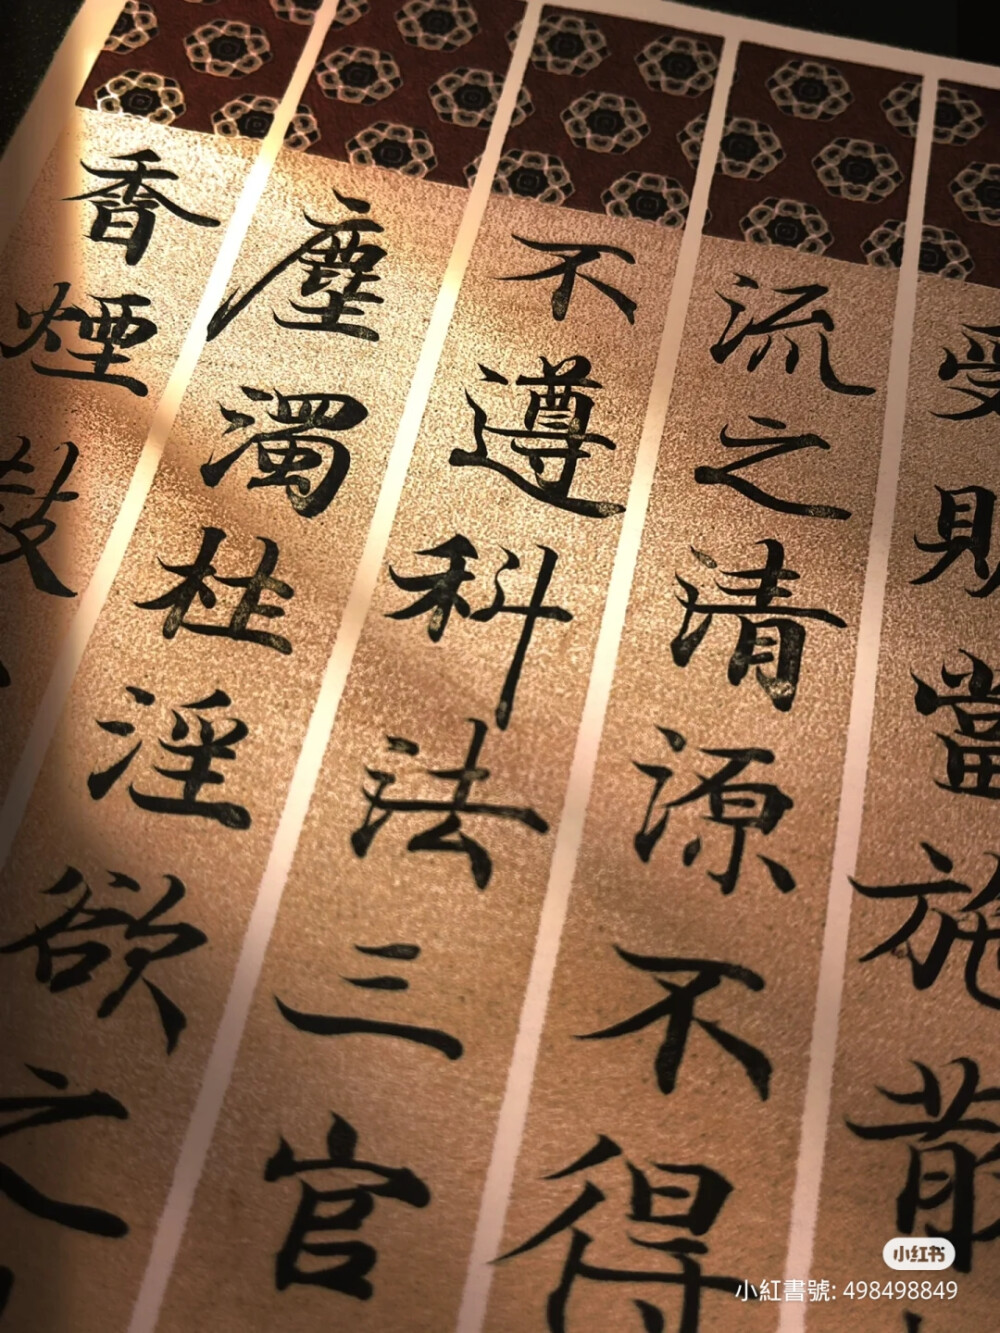 受財當施散
流之清源不得
不遵科法三官
塵濁枉淫欲之
香煙
小红书
小紅書號: 498498849